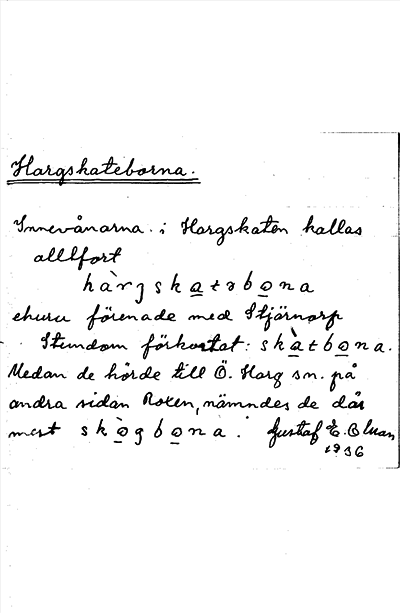 Hargskateborna.
Innevånarna i Hargskaten kallas
alltfort
hàrgskatəbona
ehuru förenade med Stjärnorp
Stundom förkortat: skàtbona.
Medan de hörde till Ö. Harg sn. på
andra sidan Roxen, nämndes de där
mest skògbona. Gustaf E. Bluan
1936